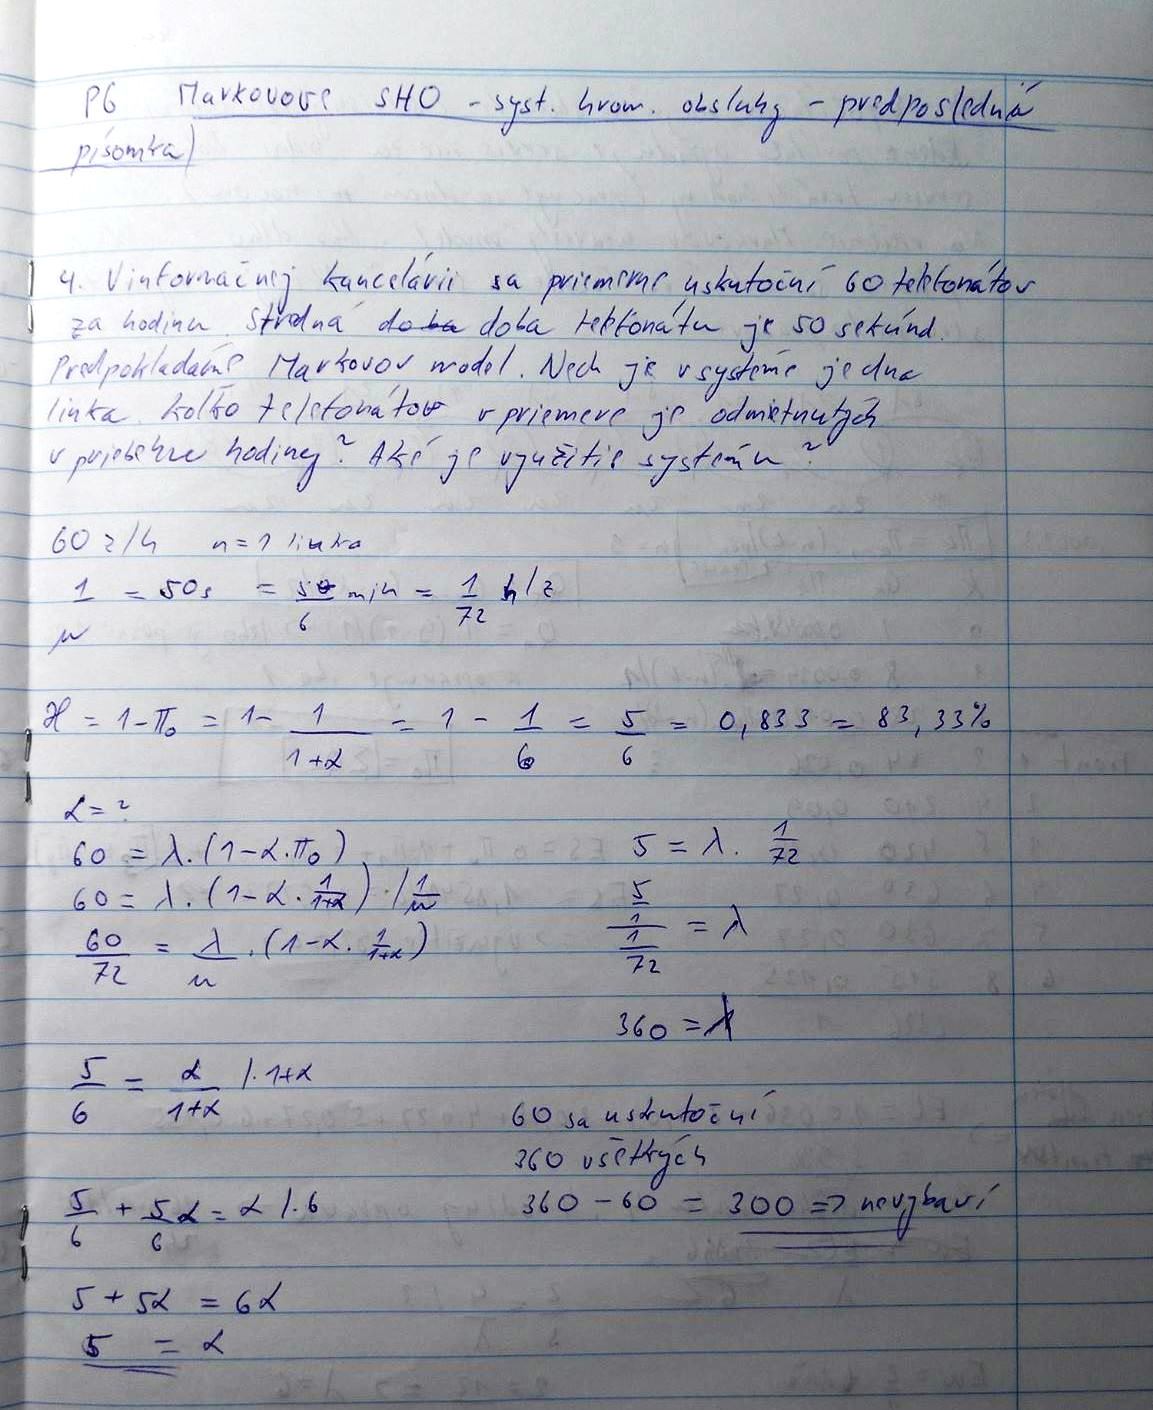 P6 Markovove SHO - syst. hrom. obsluhy - predposledná
písomka)
4. V informačnej kancelárii sa priemerne uskutoční 60 telefonátov
za hodinu. Stredná doba doba telefonátu je 50 sekúnd.
Predpokladáme Markovov model. Nech je v systéme jedna
linka. Koľko telefonátov v priemere je odmietnutých
v priebehu hodiny? Aké je využitie systému?
60 z/h n=1 linka
1/μ = 50s = 5/6 min = 1/72 h/z
ϰ = 1-π₀ = 1 - 1/(1+α) = 1 - 1/6 = 5/6 = 0,833 = 83,33%
α = ?
60 = λ.(1-α.π₀)
60 = λ.(1-α.1/(1+α)) ·/1/μ
60/72 = λ/μ .(1-α.1/(1+α))
5/6 = α/(1+α) /.1+α
5/6 + 5/6 α = α /.6
5 + 5α = 6α
5 = α
5 = λ. 1/72
5/1 / 1/72 = λ
360 = λ
60 sa uskutoční
360 všetkých
360 - 60 = 300 => nevybaví